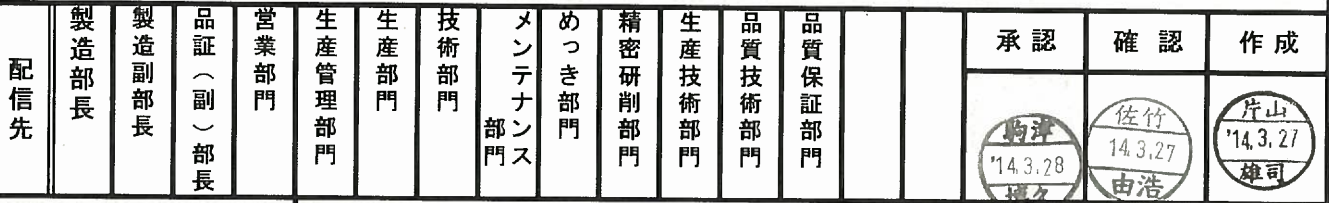 配信先
製造部長
製造副部長
品証（副）部長
営業部門
生産管理部門
生産部門
技術部門
メンテナンス
部門
めっき部門
精密研削部門
生産技術部門
品質技術部門
品質保証部門
承認
確認
作成
駒津
'14.3.28
博久
佐竹
14.3.27
由浩
片山
'14.3.27
雄司